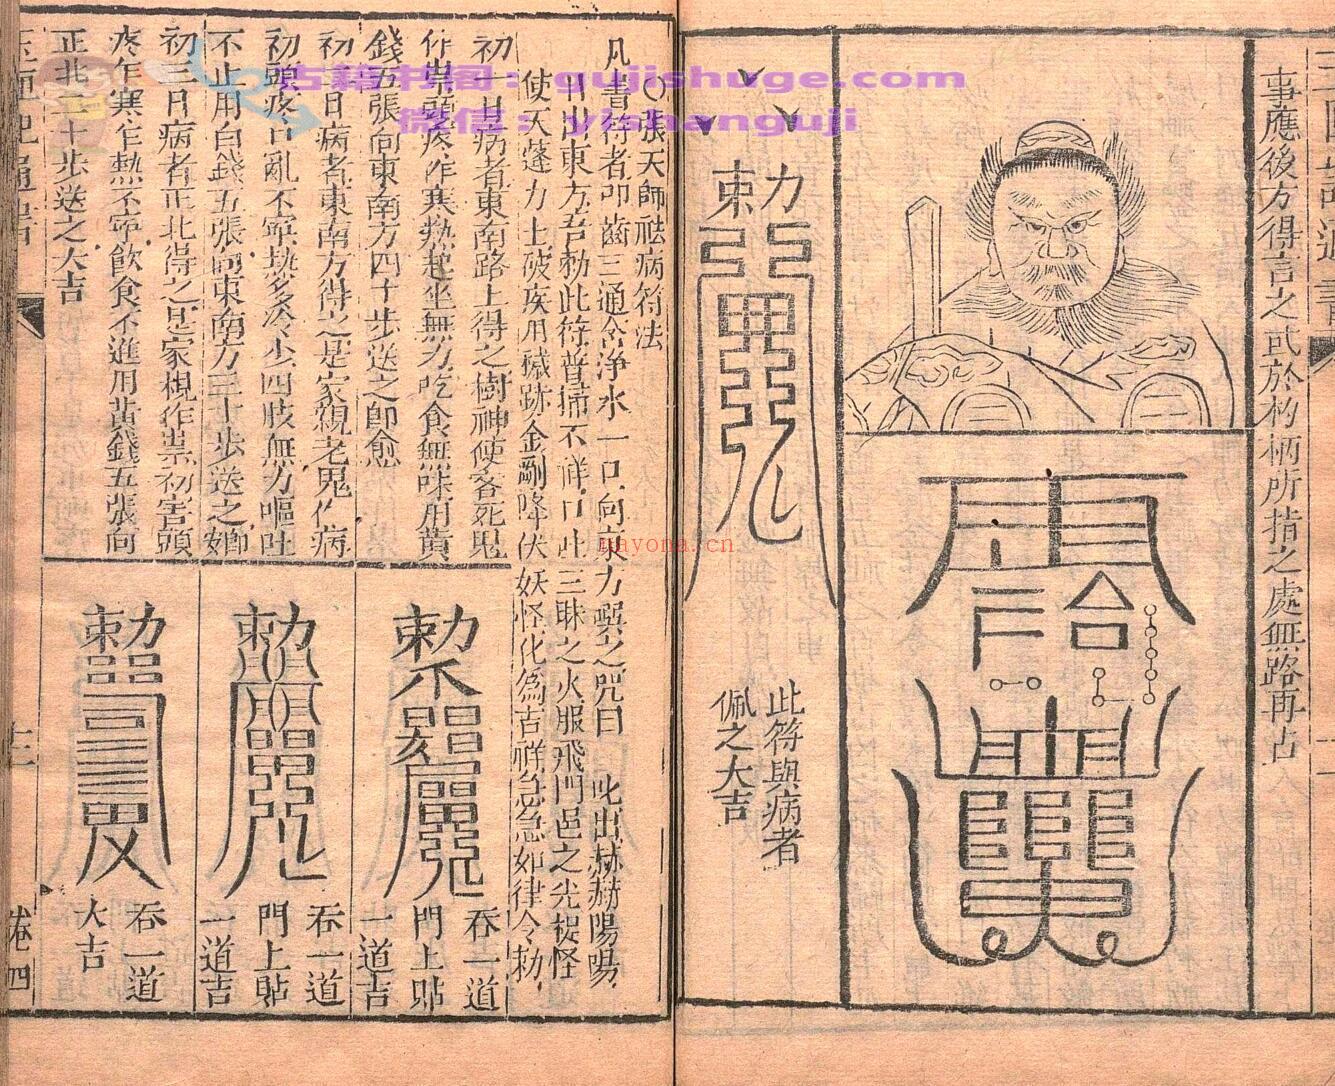 事應後方得言之或於杓柄所指之處無路再占
勅
此符與病者
佩之大吉
○張天師祛病符法
凡書符者叩齒三通含淨水一口向東方噀之咒曰 叱出赫赫陽陽
日出東方吾勅此符普掃不祥口吐三昧之火服飛門邑之光捉怪
使天蓬力士破疾用穢跡金剛降伏妖怪化為吉祥急急如律令勅
初一日病者東南路上得之樹神使客死鬼
作祟頭疼作寒熱起坐無力吃食無味用黃
錢五張向東南方四十步送之即愈
初二日病者東南方得之是家親老鬼作病
初頭疼口亂不寧熱多冷少四肢無力嘔吐
不止用白錢五張向東南方三十步送之
初三日病者正北得之是家親作祟初害頭
疼乍寒乍熱不寧飲食不進用黃錢五張向
正北二十步送之大吉
勅
吞一道
門上貼
一道吉
勅
吞一道
門上貼
一道吉
勅
吞一道
大吉
卷四
古籍书阁：gujishuge.com
微信：yishanguji
nayona.cn